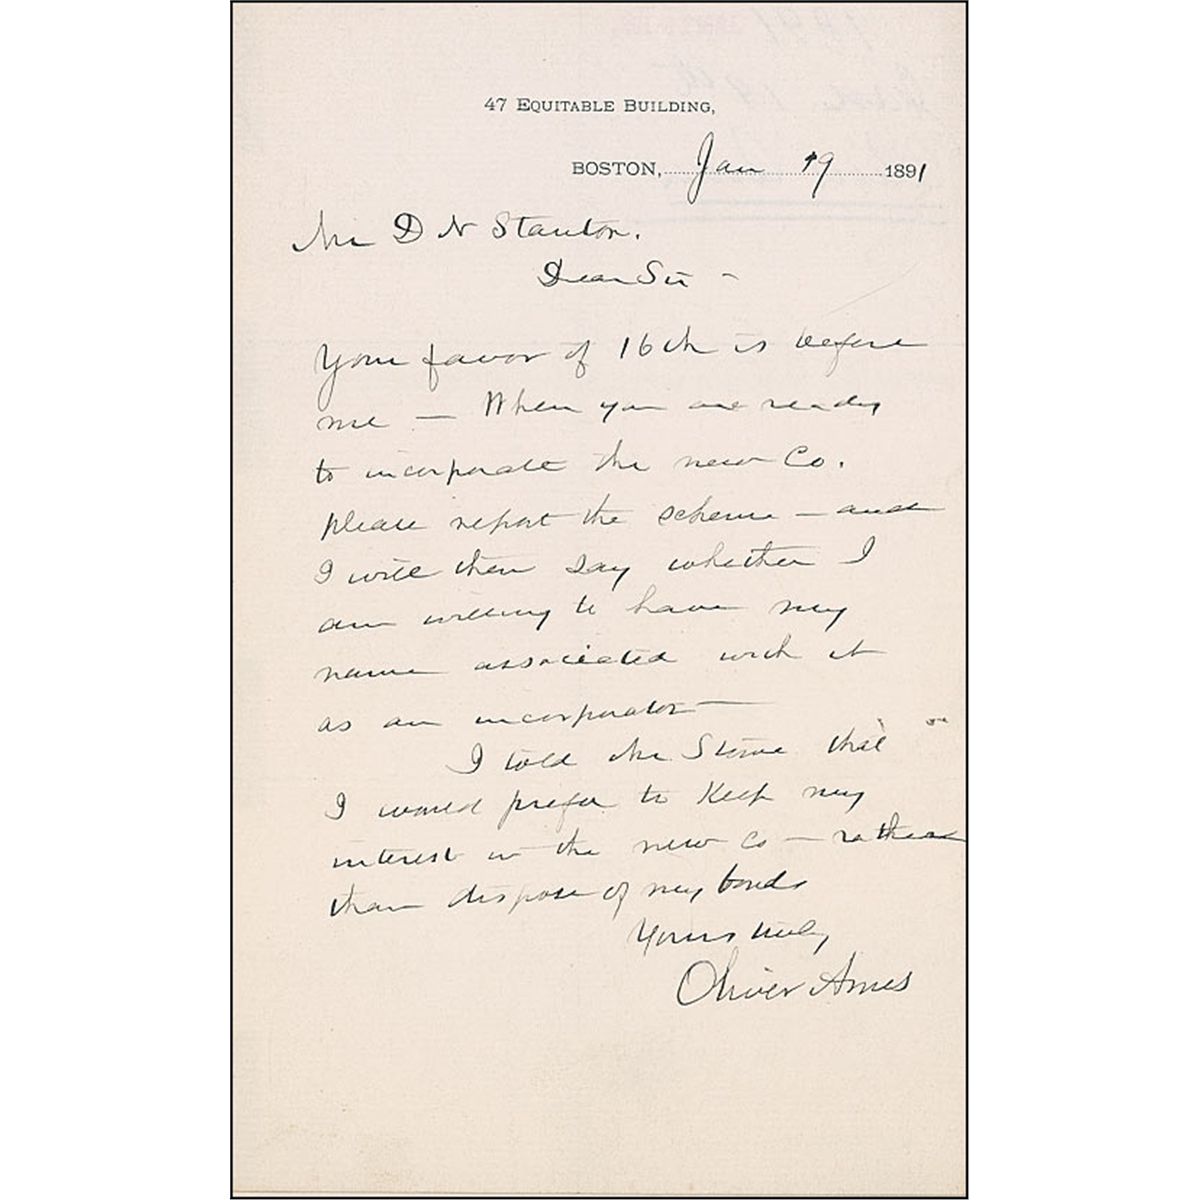 47 EQUITABLE BUILDING,
BOSTON, Jan 19 1891
Mr D N Stanton.
Dear Sir -
Your favor of 16th is before
me — When you are ready
to incorporate the new Co.
please report the scheme — and
I will then say whether I
am willing to have my
name associated with it
as an incorporator —
I told Mr. that
I would prefer to Keep my
interest in the new Co — rather
than dispose of my bonds
Yours truly
Oliver Ames